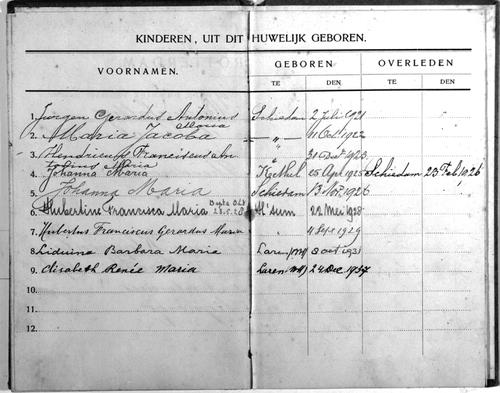 KINDEREN, UIT DIT HUWELIJK GEBOREN.
VOORNAMEN.
GEBOREN
OVERLEDEN
TE DEN TE DEN
1. Jurgen Gerardus Antonius Schiedam 2 Juli 1921
2. Maria Jacoba
3. Hendricus Franciscus An-
tonius Maria
4. Johanna Maria Kethel 25 April 1925 Schiedam 23 Feb. 1926
5. Johanna Maria Schiedam 13 Nov. 1926
6. Hubertina Francisca Maria H'sum 22 Mei 1928
7. Hubertus Franciscus Gerardus Maria 4 Sept 1929
8. Liduina Barbara Maria Laren (NH) 8 oct 1931
9. Elisabeth Renée Maria Laren (NH) 24 Dec 1937
10.
11.
12.